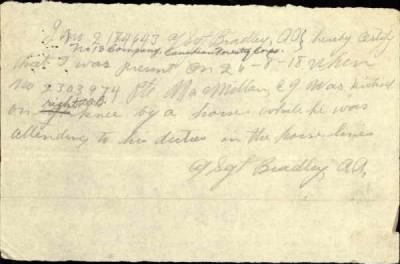 I No 2184643 a/Sgt Bradley, A.A, hereby certify
No 13 Company, Canadian Forestry Corps.
that I was present on 26-8-18 when
No 2303974 Pte MacMillan, C J was kicked
right
on knee by a horse while he was
attending to his duties in the horse lines
a/Sgt Bradley A.A,